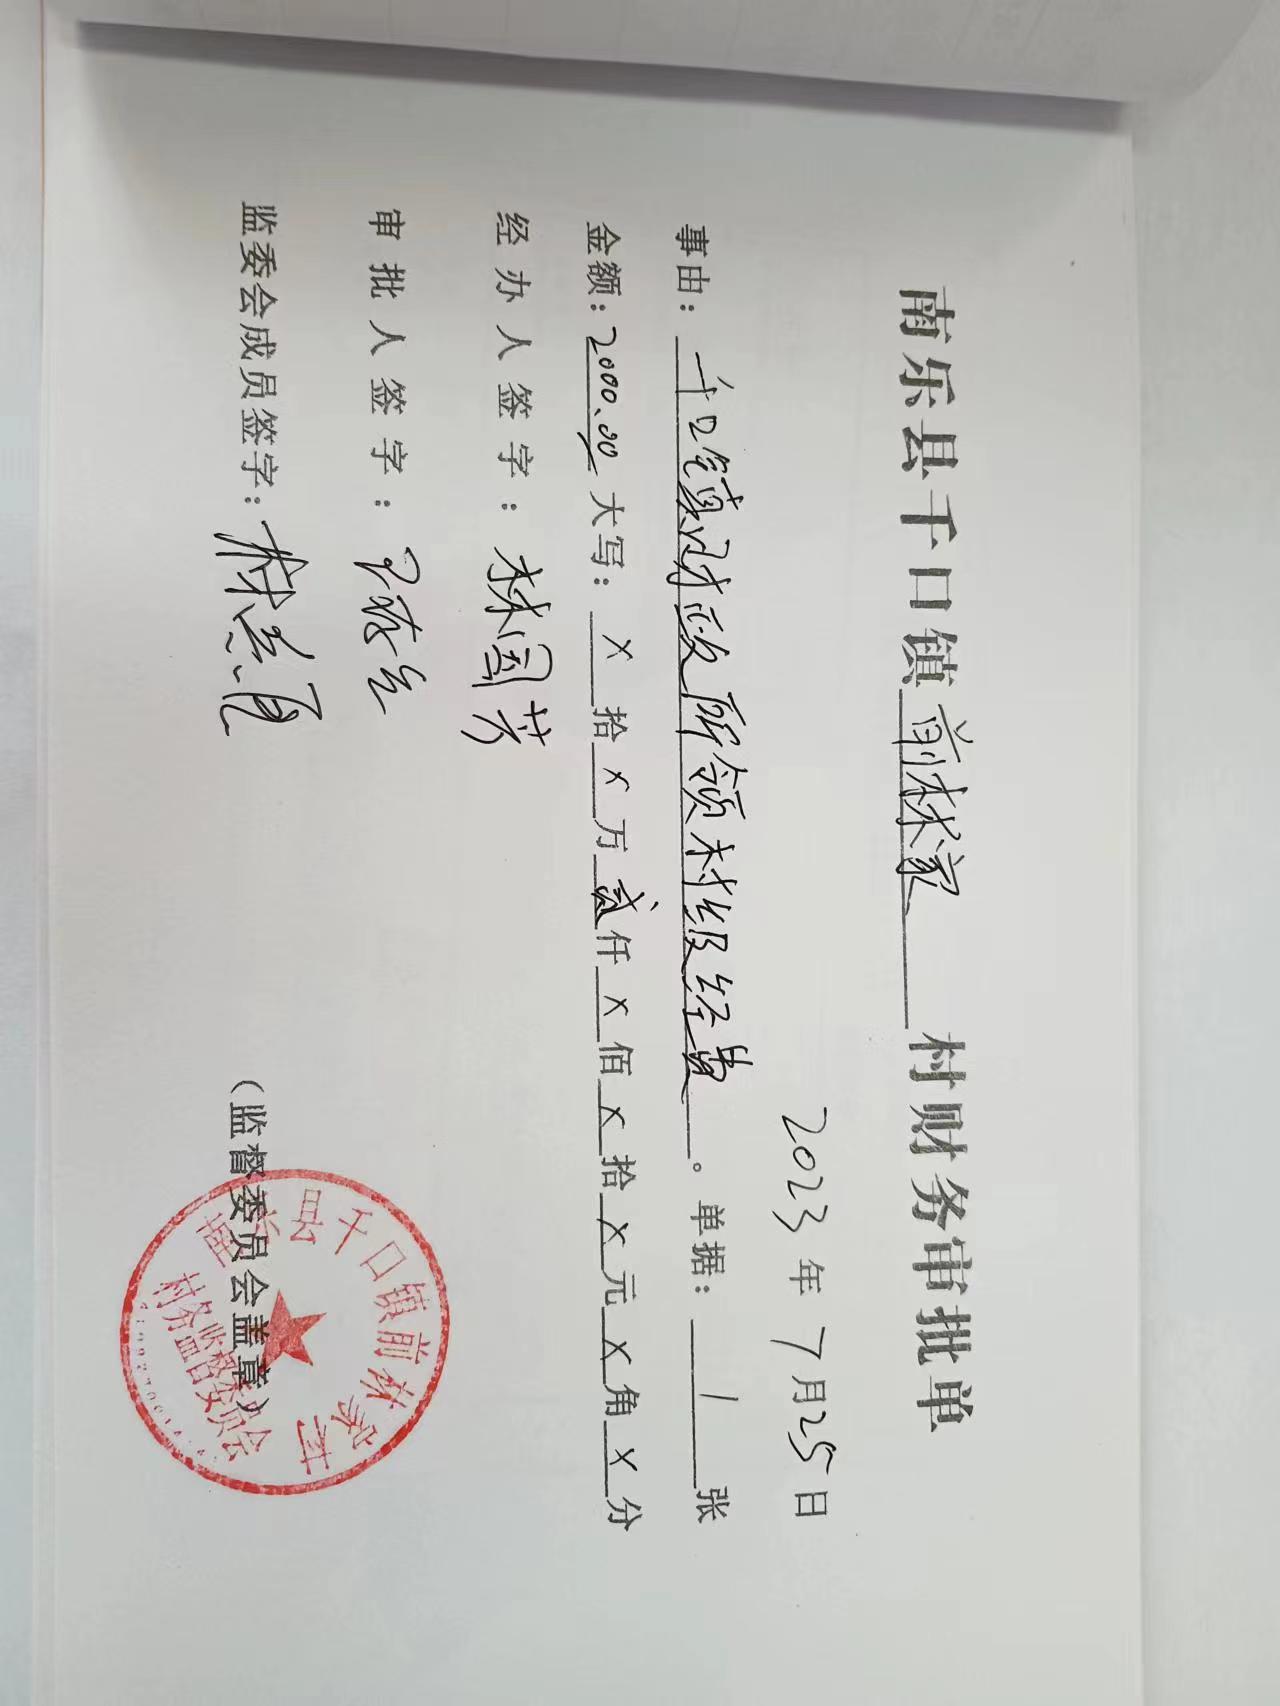 南乐县千口镇 前林家 村财务审批单
2023年7月25日
事由：千口镇财政所领村级经费。单据：1张
金额：2000.00 大写：X拾X万贰仟X佰X拾X元X角X分
经办人签字：林国芳
审批人签字：
监委会成员签字：
（监督委员会盖章）
南乐县千口镇前林家村
村务监督委员会